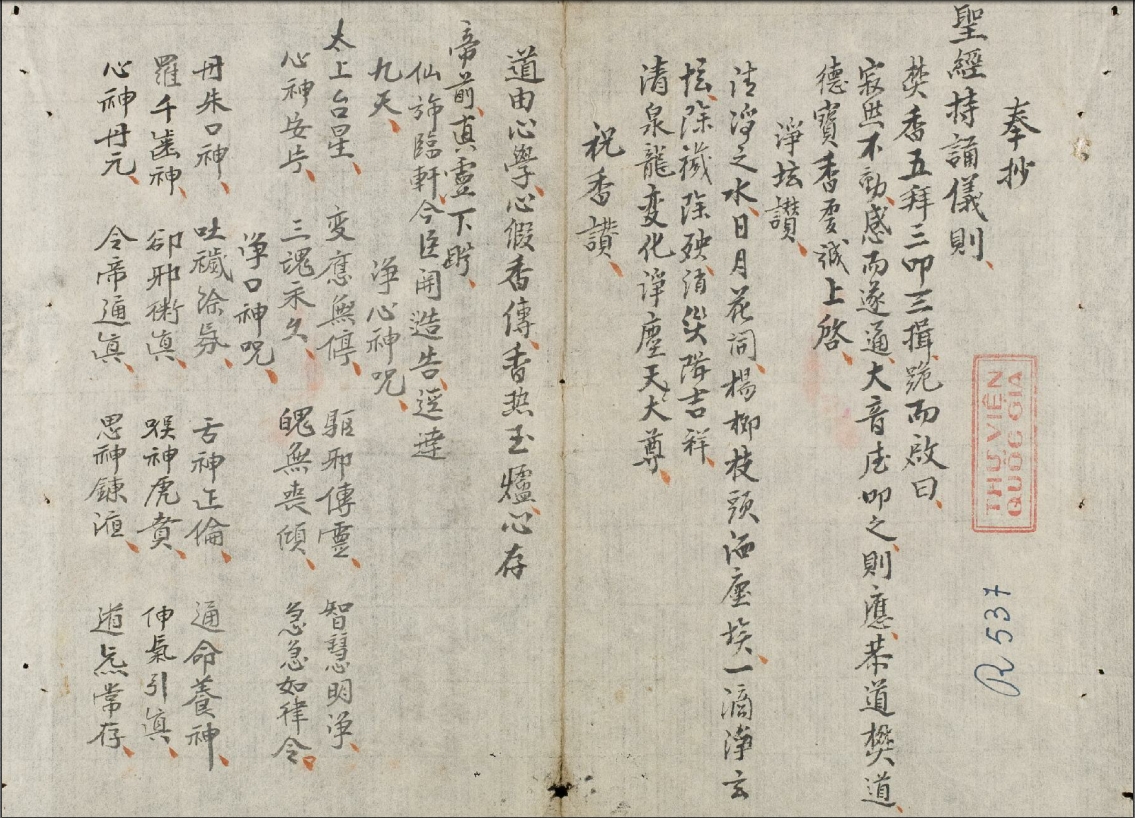 奉抄
聖經持誦儀則、
焚香五拜三叩三揖、跪而啟曰、
寂然不動、感而遂通大音虗叩之、則應、恭道焚道、
德寶香、虔誠上啓、
淨坛讃、
清淨之水、日月花同楊柳枝頭洒塵埃、一滴淨玄
坛、除穢除殃、消災降吉祥、
清泉龍变化淨塵天大尊、
祝香讃、
道由心學、心假香傳、香热玉爐、心存
帝前、真靈下盻、
仙斾臨軒、今臣開造告、逕達
九天、
淨心神咒、
太上台星、变應無停、驅邪傳靈、智慧明淨、
心神安𡨴、三魂永久、魄無喪傾、急急如律令、
淨口神咒、
丹朱口神、吐穢除氛、舌神正倫、通命養神、
羅千齒神、卻邪衛真、喉神虎賁、伸氣引真、
心神丹元、令帝通真、思神鍊液、道炁常存、
THƯ VIỆN
QUỐC GIA
R 537